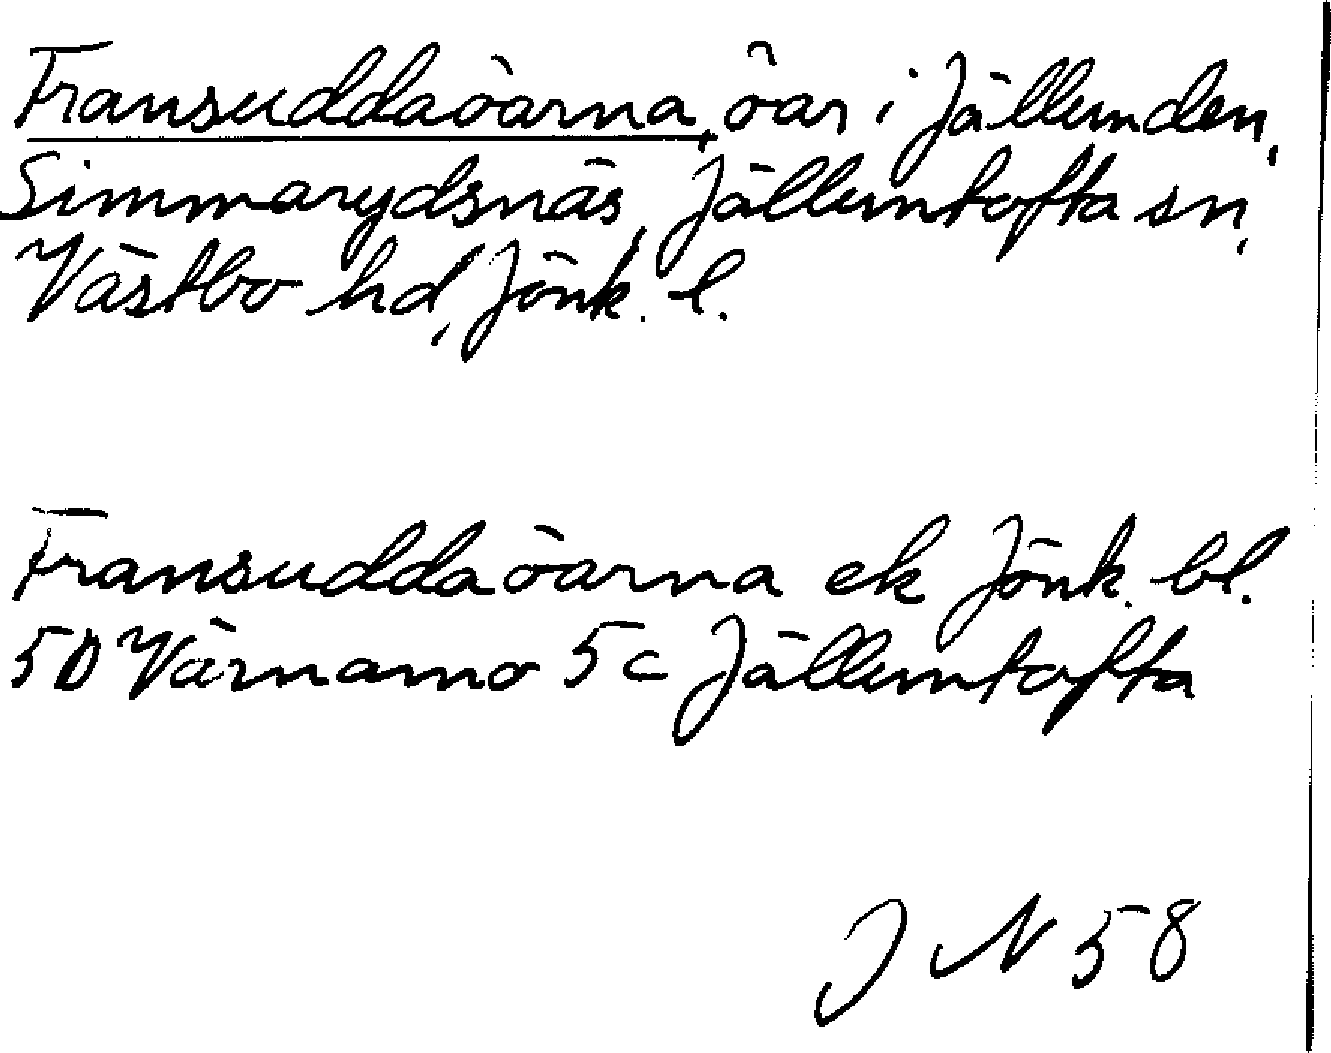 Fransuddaöarna, öar i Jällunden,
Simmarydsnäs, Jälluntofta sn,
Västbo hd, Jönk. l.
Fransuddaöarna ek Jönk. bl.
5D Värnamo 5c Jälluntofta
J N 58